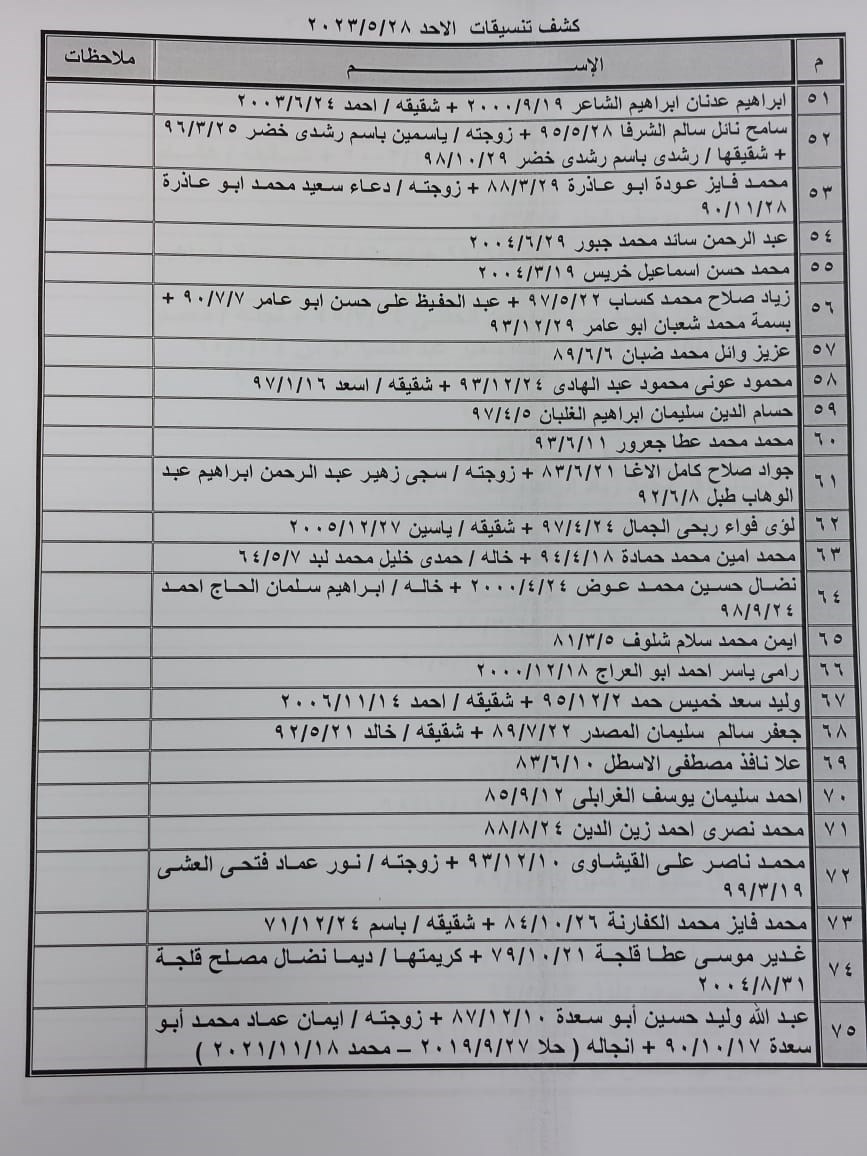 كشف تنسيقات الاحد ٢٠٢٣/٥/٢٨
م الإســـــــــــــم ملاحظات
٥١ ابراهيم عدنان ابراهيم الشاعر ٢٠٠٠/٩/١٩ + شقيقه / احمد ٢٠٠٣/٦/٢٤
٥٢ سامح نائل سالم الشرفا ٩٥/٥/٢٨ + زوجته / ياسمين باسم رشدى خضر ٩٦/٣/٢٥
+ شقيقها / رشدى باسم رشدى خضر ٩٨/١٠/٢٩
٥٣ محمد فايز عودة ابو عاذرة ٨٨/٣/٢٩ + زوجته / دعاء سعيد محمد ابو عاذرة
٩٠/١١/٢٨
٥٤ عبد الرحمن سائد محمد جبور ٢٠٠٤/٦/٢٩
٥٥ محمد حسن اسماعيل خريس ٢٠٠٤/٣/١٩
٥٦ زياد صلاح محمد كساب ٩٧/٥/٢٢ + عبد الحفيظ على حسن ابو عامر ٩٠/٧/٧ +
بسمة محمد شعبان ابو عامر ٩٣/١٢/٢٩
٥٧ عزيز وائل محمد ضبان ٨٩/٦/٦
٥٨ محمود عونى محمود عبد الهادى ٩٣/١٢/٢٤ + شقيقه / اسعد ٩٧/١/١٦
٥٩ حسام الدين سليمان ابراهيم الغلبان ٩٧/٤/٥
٦٠ محمد محمد عطا جعرور ٩٣/٦/١١
٦١ جواد صلاح كامل الاغا ٨٣/٦/٢١ + زوجته / سجى زهير عبد الرحمن ابراهيم عبد
الوهاب طبل ٩٢/٦/٨
٦٢ لؤى فواء ربحى الجمال ٩٧/٤/٢٤ + شقيقه / ياسين ٢٠٠٥/١٢/٢٧
٦٣ محمد امين محمد حمادة ٩٤/٤/١٨ + خاله / حمدى خليل محمد لبد ٦٤/٥/٧
٦٤ نضال حسين محمد عوض ٢٠٠٠/٤/٢٤ + خاله / ابراهيم سلمان الحاج احمد
٩٨/٩/٢٤
٦٥ ايمن محمد سلام شلوف ٨١/٣/٥
٦٦ رامى ياسر احمد ابو العراج ٢٠٠٠/١٢/١٨
٦٧ وليد سعد خميس حمد ٩٥/١٢/٢ + شقيقه / احمد ٢٠٠٦/١١/١٤
٦٨ جعفر سالم سليمان المصدر ٨٩/٧/٢٢ + شقيقه / خالد ٩٢/٥/٢١
٦٩ علا نافذ مصطفى الاسطل ٨٣/٦/١٠
٧٠ احمد سليمان يوسف الغرابلى ٨٥/٩/١٢
٧١ محمد نصرى احمد زين الدين ٨٨/٨/٢٤
٧٢ محمد ناصر على القيشاوى ٩٣/١٢/١٠ + زوجته / نور عماد فتحى العشى
٩٩/٣/١٩
٧٣ محمد فايز محمد الكفارنة ٨٤/١٠/٢٦ + شقيقه / باسم ٧١/١٢/٢٤
٧٤ غدير موسى عطا قلجة ٧٩/١٠/٢١ + كريمتها / ديما نضال مصلح قلجة
٢٠٠٤/٨/٣١
٧٥ عبد الله وليد حسين أبو سعدة ٨٧/١٢/١٠ + زوجته / ايمان عماد محمد أبو
سعدة ٩٠/١٠/١٧ + انجاله ( حلا ٢٠١٩/٩/٢٧ – محمد ٢٠٢١/١١/١٨ )